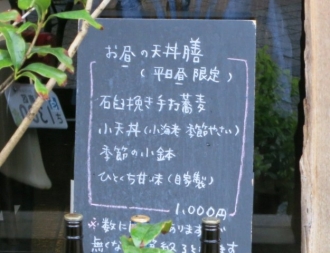 お昼の天丼膳
(平日昼限定)
石臼挽き手打蕎麦
小天丼(小海老 季節やさい)
季節の小鉢
ひとくち甘味(自家製)
1,000円
※数に りますので
無くな 終了 ます